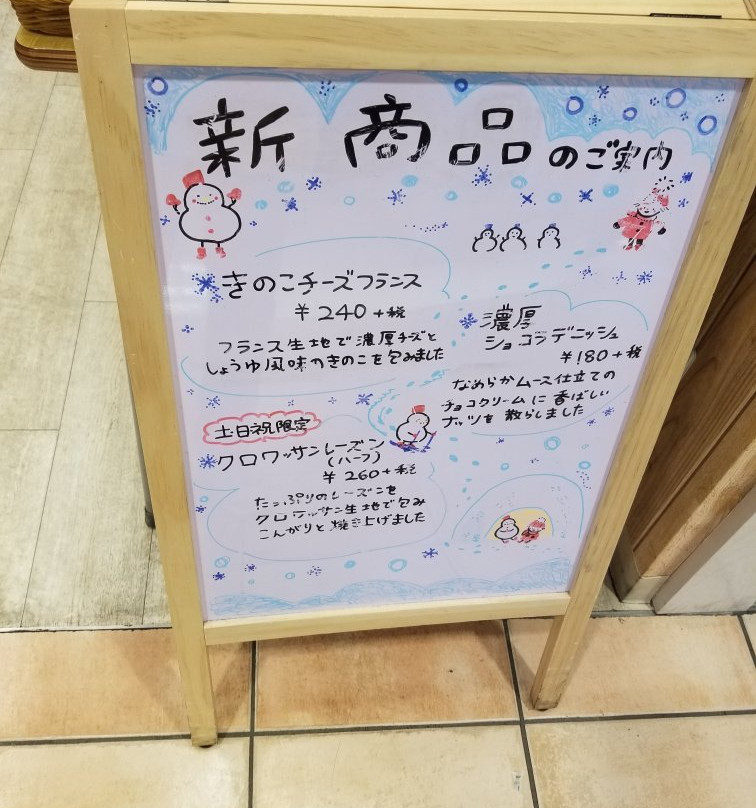 新商品のご案内
きのこチーズフランス
¥240+税
フランス生地で濃厚チーズと
しょうゆ風味のきのこを包みました
濃厚
ショコラデニッシュ
¥180+税
なめらかムース仕立ての
チョコクリームに香ばしい
ナッツを散らしました
土日祝限定
クロワッサンレーズン
(ハーフ)
¥260+税
たっぷりのレーズンを
クロワッサン生地で包み
こんがりと焼き上げました